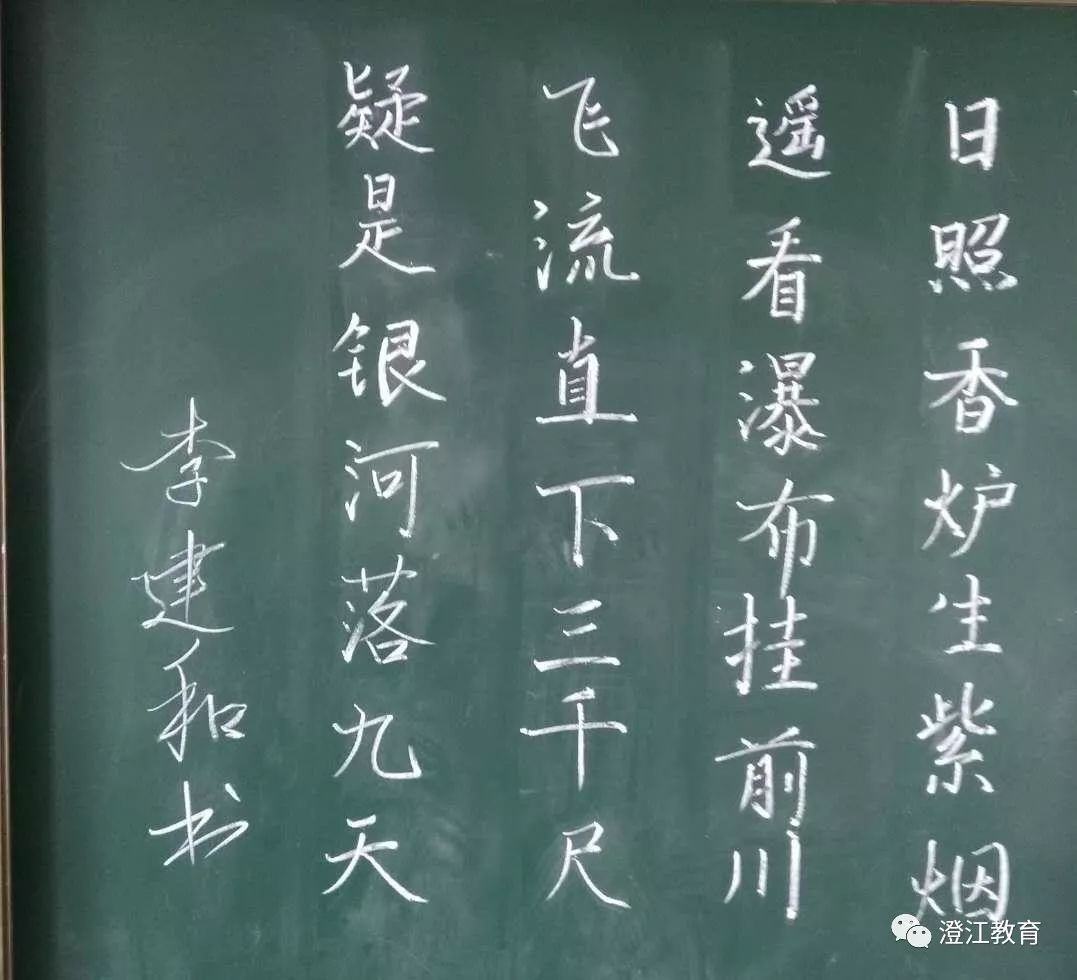 日照香炉生紫烟
遥看瀑布挂前川
飞流直下三千尺
疑是银河落九天
李建和书
澄江教育